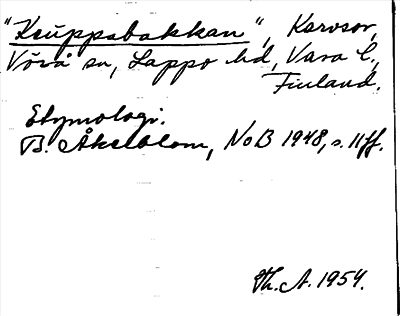 "Keuppabakkan", Karvsor,
Vörå sn, Lappo hd, Vasa l.,
Finland.
Etymologi.
B. Åkerblom, NoB 1948, s. 11ff.
Th. A. 1954.